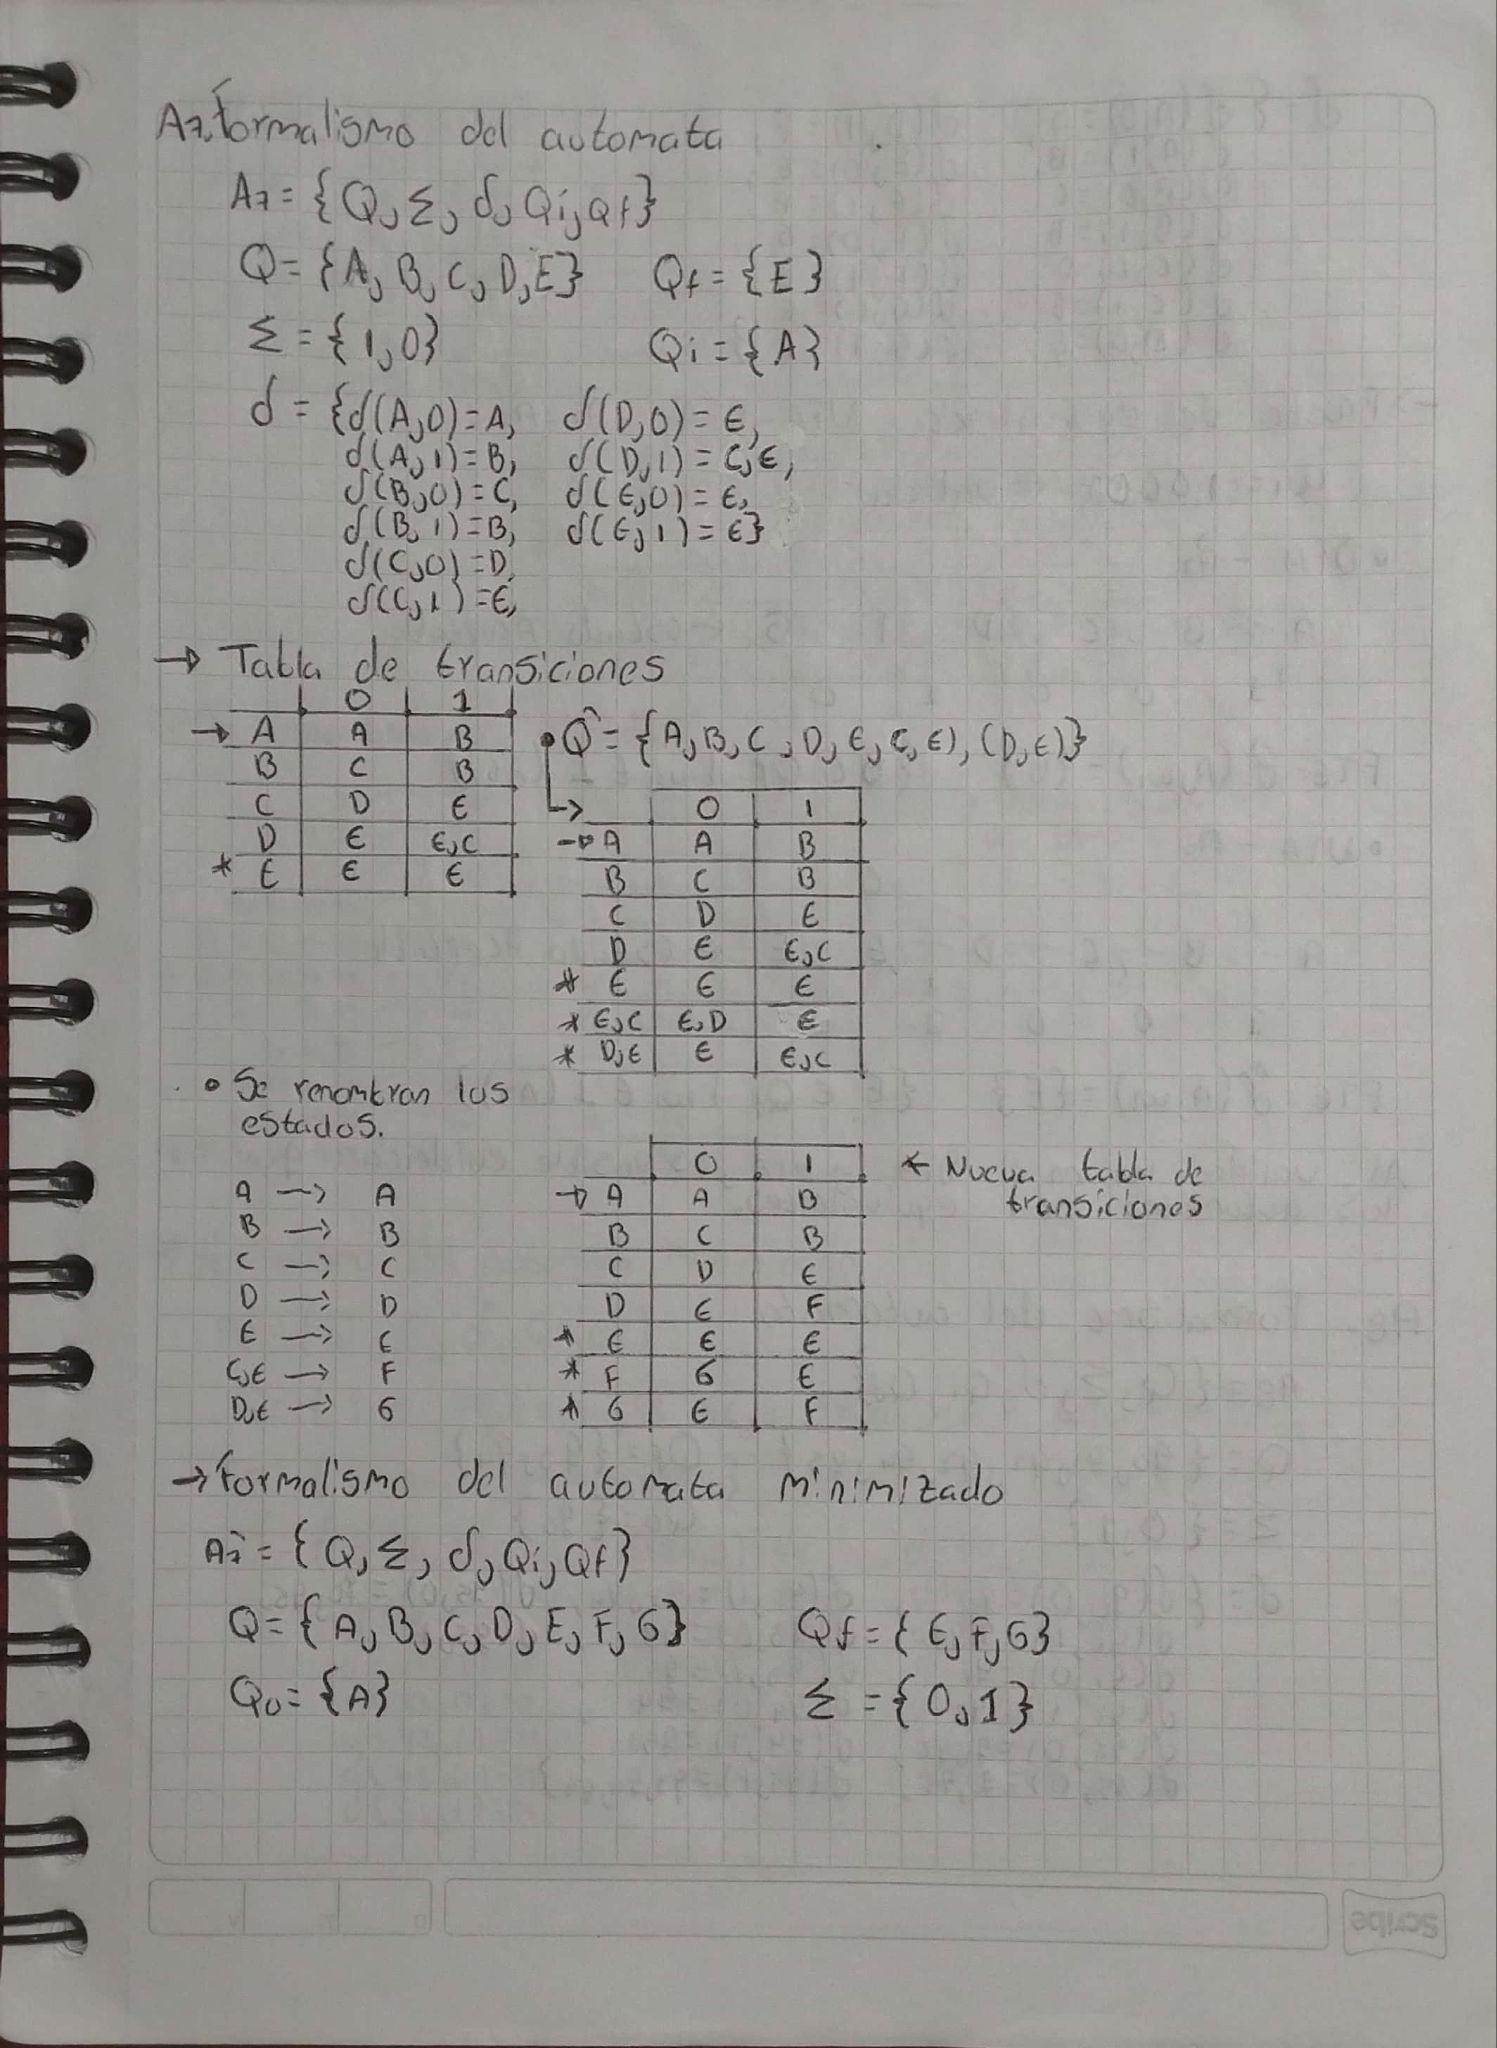 A7. Formalismo del automata
A7 = {Q, Σ, δ, Qi, Qf}
Q = {A, B, C, D, E} Qf = {E}
Σ = {1, 0} Qi = {A}
δ = {δ(A,0)=A, δ(D,0) = E,
δ(A,1)=B, δ(D,1) = C,E,
δ(B,0)=C, δ(E,0) = E,
δ(B,1)=B, δ(E,1) = E}
δ(C,0)=D,
δ(C,1)=E,
→ Tabla de transiciones
0 1
→ A A B
B C B
C D E
D E E,C
* E E E
• Q̂ = {A, B, C, D, E, C, E), (D,E)}
0 1
→ A A B
B C B
C D E
D E E,C
* E E E
* E,C E,D E
* D,E E E,C
• Se renombran los
estados.
A → A
B → B
C → C
D → D
E → E
C,E → F
D,E → G
0 1
→ A A B
B C B
C D E
D E F
* E E E
* F G E
* G E F
← Nueva tabla de
transiciones
→ Formalismo del automata minimizado
A7̂ = {Q, Σ, δ, Qi, Qf}
Q = {A, B, C, D, E, F, G} Qf = {E, F, G}
Q0 = {A} Σ = {0, 1}
Scribe